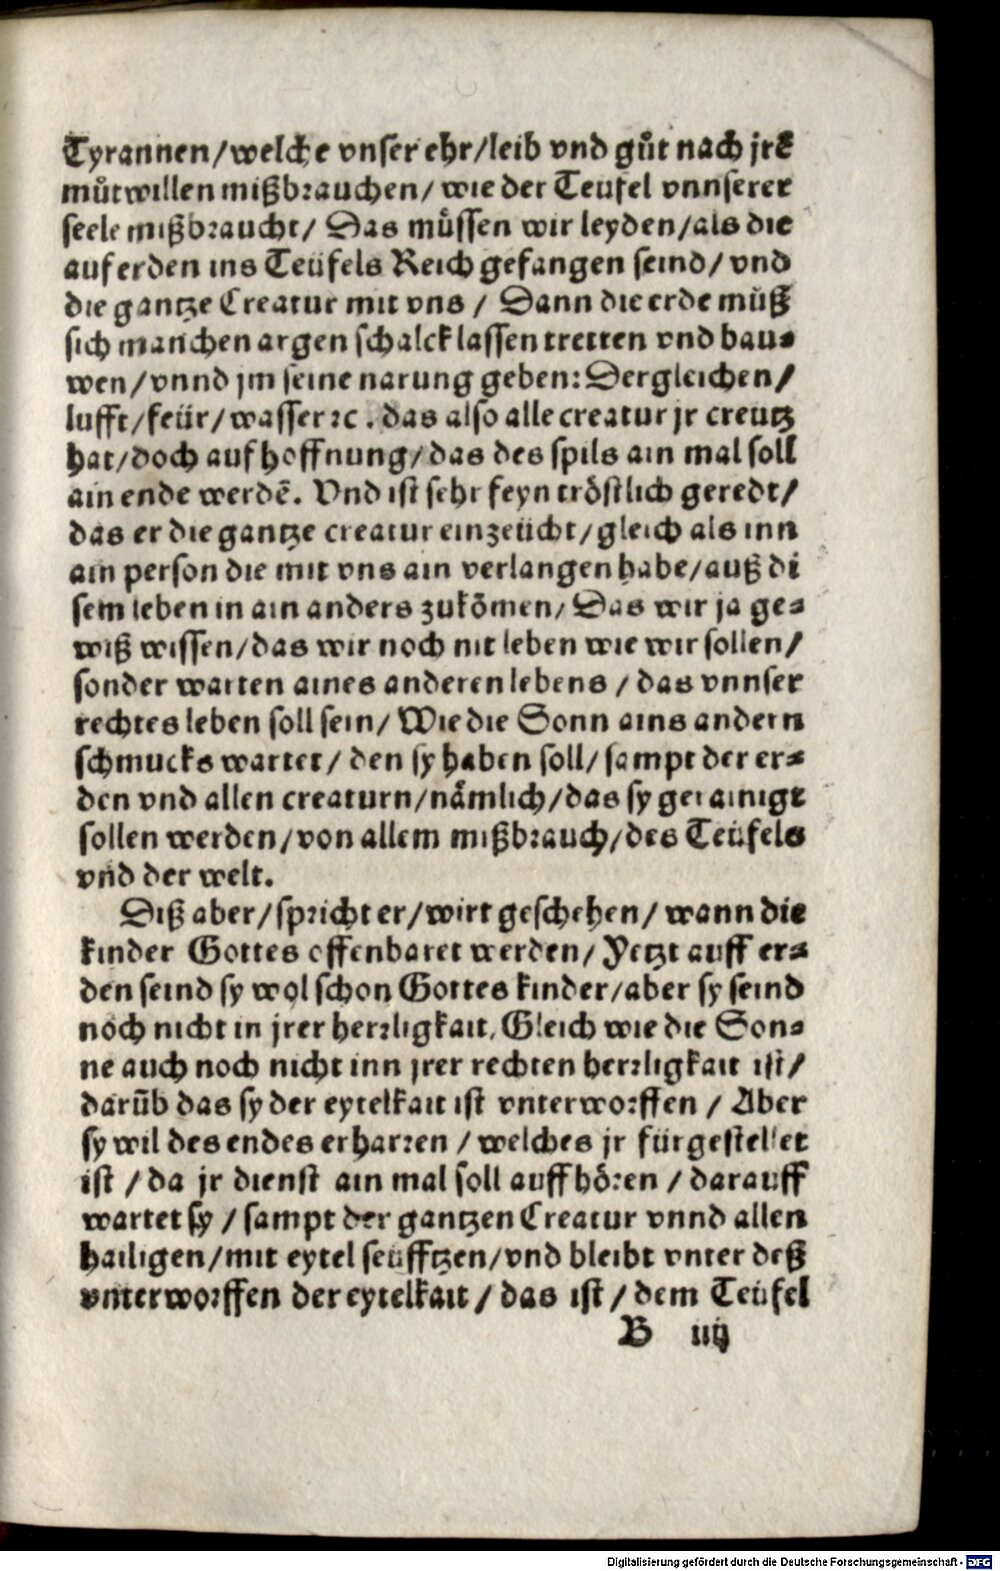 Tyrannen/welche vnser ehr/leib vnd gůt nach jrē
můtwillen mißbrauchen/ wie der Teufel vnnserer
seele mißbraucht/ Das můssen wir leyden/als die
auf erden ins Teüfels Reich gefangen seind/ vnd
die gantze Creatur mit vns / Dann die erde můß
sich manchen argen schalck lassen tretten vnd bau⸗
wen/vnnd jm seine narung geben: Dergleichen/
lufft/feür/wasser ꝛc. das also alle creatur jr creutz
hat/doch auf hoffnung/das des spils ain mal soll
ain ende werdē. Vnd ist sehr feyn tröstlich geredt/
das er die gantze creatur einzeücht/gleich als inn
ain person die mit vns ain verlangen habe/auß di
sem leben in ain anders zukōmen/ Das wir ja ge⸗
wiß wissen/das wir noch nit leben wie wir sollen/
sonder warten aines anderen lebens / das vnnser
rechtes leben soll sein/ Wie die Sonn ains andern
schmucks wartet/ den sy haben soll/ sampt der er⸗
den vnd allen creaturn/nämlich/das sy gerainigt
sollen werden/von allem mißbrauch/des Teüfels
vnd der welt.
Diß aber/spricht er/wirt geschehen/ wann die
kinder Gottes offenbaret werden/ Yetzt auff er⸗
den seind sy wol schon Gottes kinder/aber sy seind
noch nicht in jrer herrligkait, Gleich wie die Son⸗
ne auch noch nicht inn jrer rechten herrligkait ist/
darūb das sy der eytelkait ist vnterworffen / Aber
sy wil des endes erharren / welches jr fürgestellet
ist / da jr dienst ain mal soll auffhören / darauff
wartet sy / sampt der gantzen Creatur vnnd allen
hailigen/mit eytel seüfftzen/vnd bleibt vnter deß
vnterworffen der eytelkait / das ist / dem Teüfel
B iiij
Digitalisierung gefördert durch die Deutsche Forschungsgemeinschaft - DFG